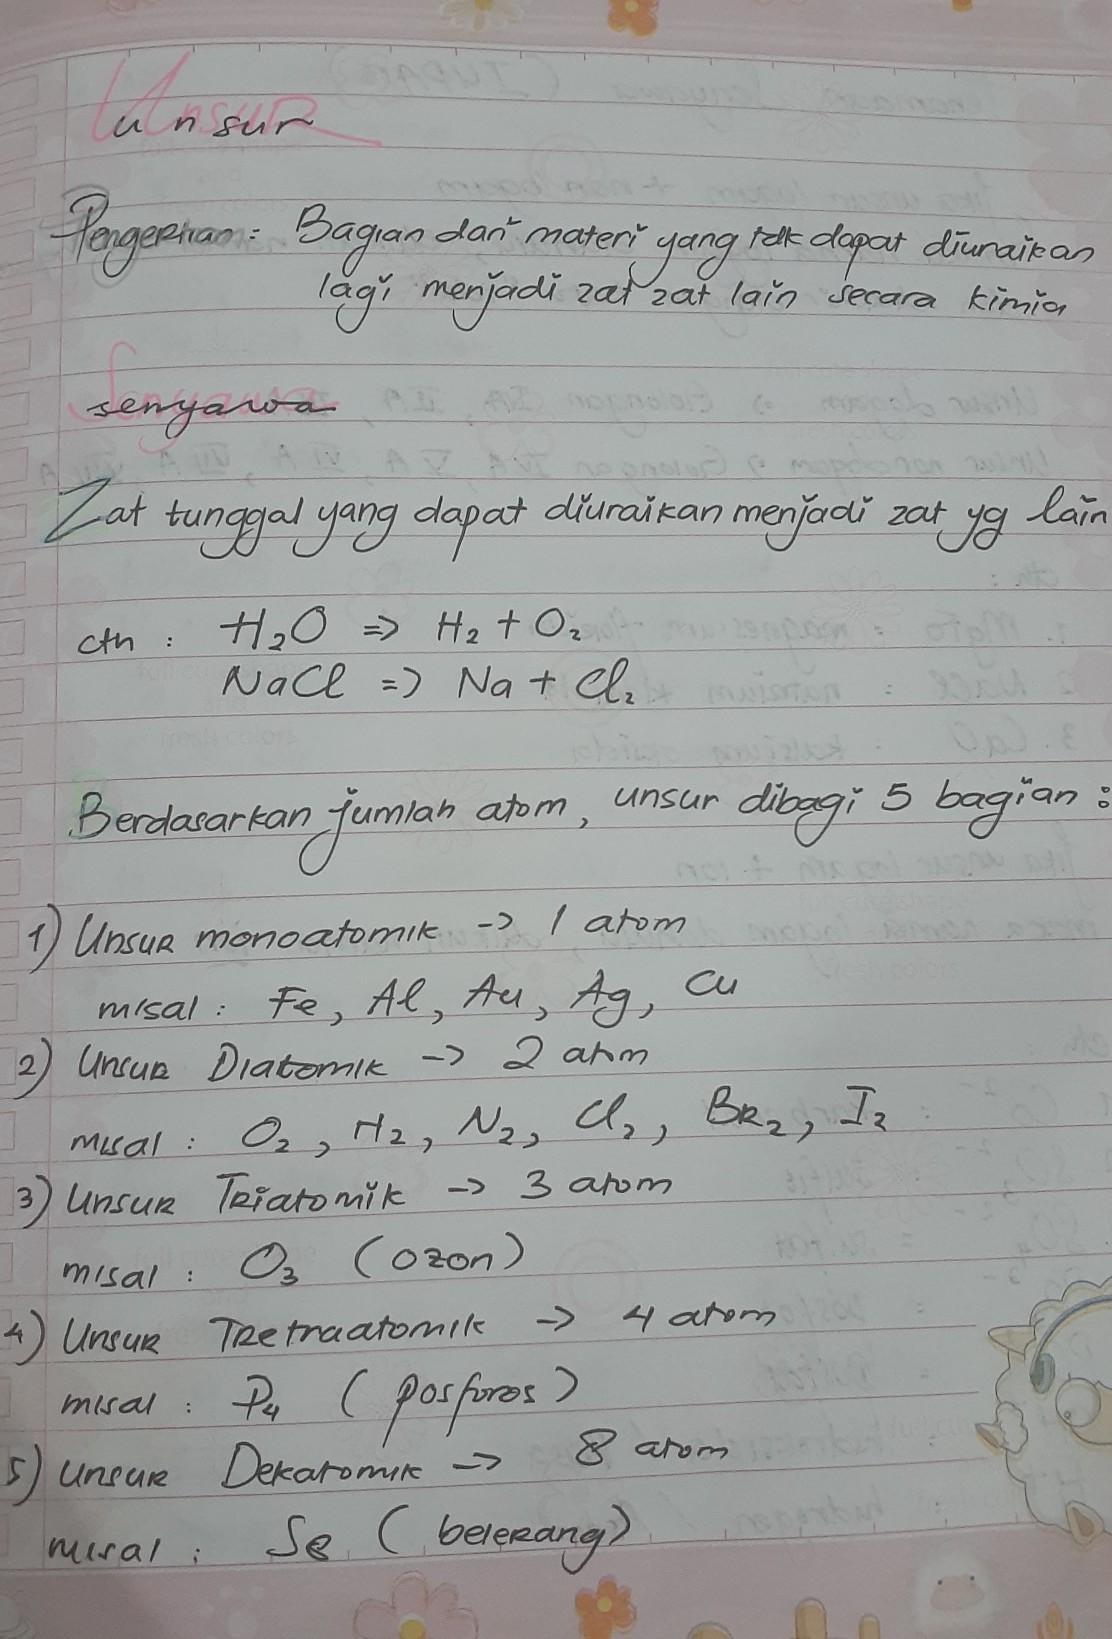 Unsur
Pengertian : Bagian dari materi yang tdk dapat diuraikan
lagi menjadi zat zat lain secara kimia
Senyawa
Zat tunggal yang dapat diuraikan menjadi zat yg lain
cth : H₂O => H₂ + O₂
NaCl => Na + Cl₂
Berdasarkan jumlah atom, unsur dibagi 5 bagian :
1) Unsur monoatomik -> 1 atom
misal : Fe, Al, Au, Ag, Cu
2) Unsur Diatomik -> 2 atom
misal : O₂, H₂, N₂, Cl₂, BR₂, I₂
3) Unsur Triatomik -> 3 atom
misal : O₃ (ozon)
4) Unsur Tretraatomik -> 4 atom
misal : P₄ (posforos)
5) Unsur Dekatomik -> 8 atom
misal : S₈ (belerang)